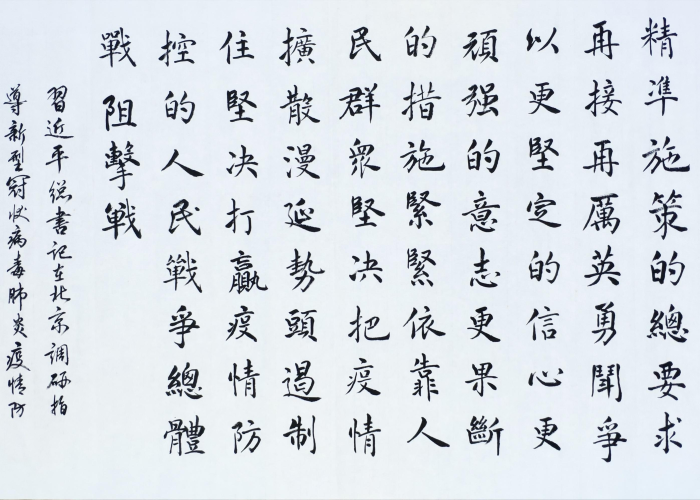 精準施策的總要求
再接再厲英勇鬪爭
以更堅定的信心更
頑强的意志更果斷
的措施緊緊依靠人
民群衆堅决把疫情
擴散漫延勢頭遏制
住堅决打贏疫情防
控的人民戰爭總體
戰阻擊戰
習近平總書記在北京調研指
導新型冠狀病毒肺炎疫情防